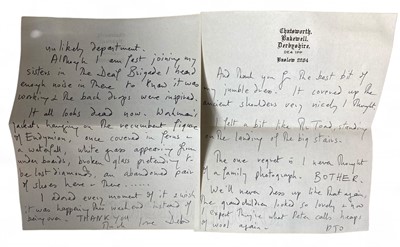 unlikely department.
Although I am fast joining my
sisters in the Deaf Brigade I heard
enough noise in there to know it was
working & the back drops were inspired.
It all looks dead now. Walkman
jackets hanging on the recumbent figure
of Endymion, once covered in ferns &
a waterfall, white grass appearing from
under boards, broken glass pretending to
be lost diamonds, an abandoned pair
of shoes here & there......
I adored every moment of it & wish
it was happening this weekend instead of
being over. THANK YOU
Much love Debo
Chatsworth,
Bakewell,
Derbyshire.
Baslow 2204
And Thank you for the best bit of
my jumble dress. It covered up the
ancient shoulders very nicely I thought
I felt a bit like Mr Toad standing
on the landing of the big stairs.
The one regret is I never thought
of a family photograph. BOTHER.
We'll never dress up like that again.
The grandchildren looked so lovely & now
I expect they're what Peter calls heaps
of wool again.
PTO